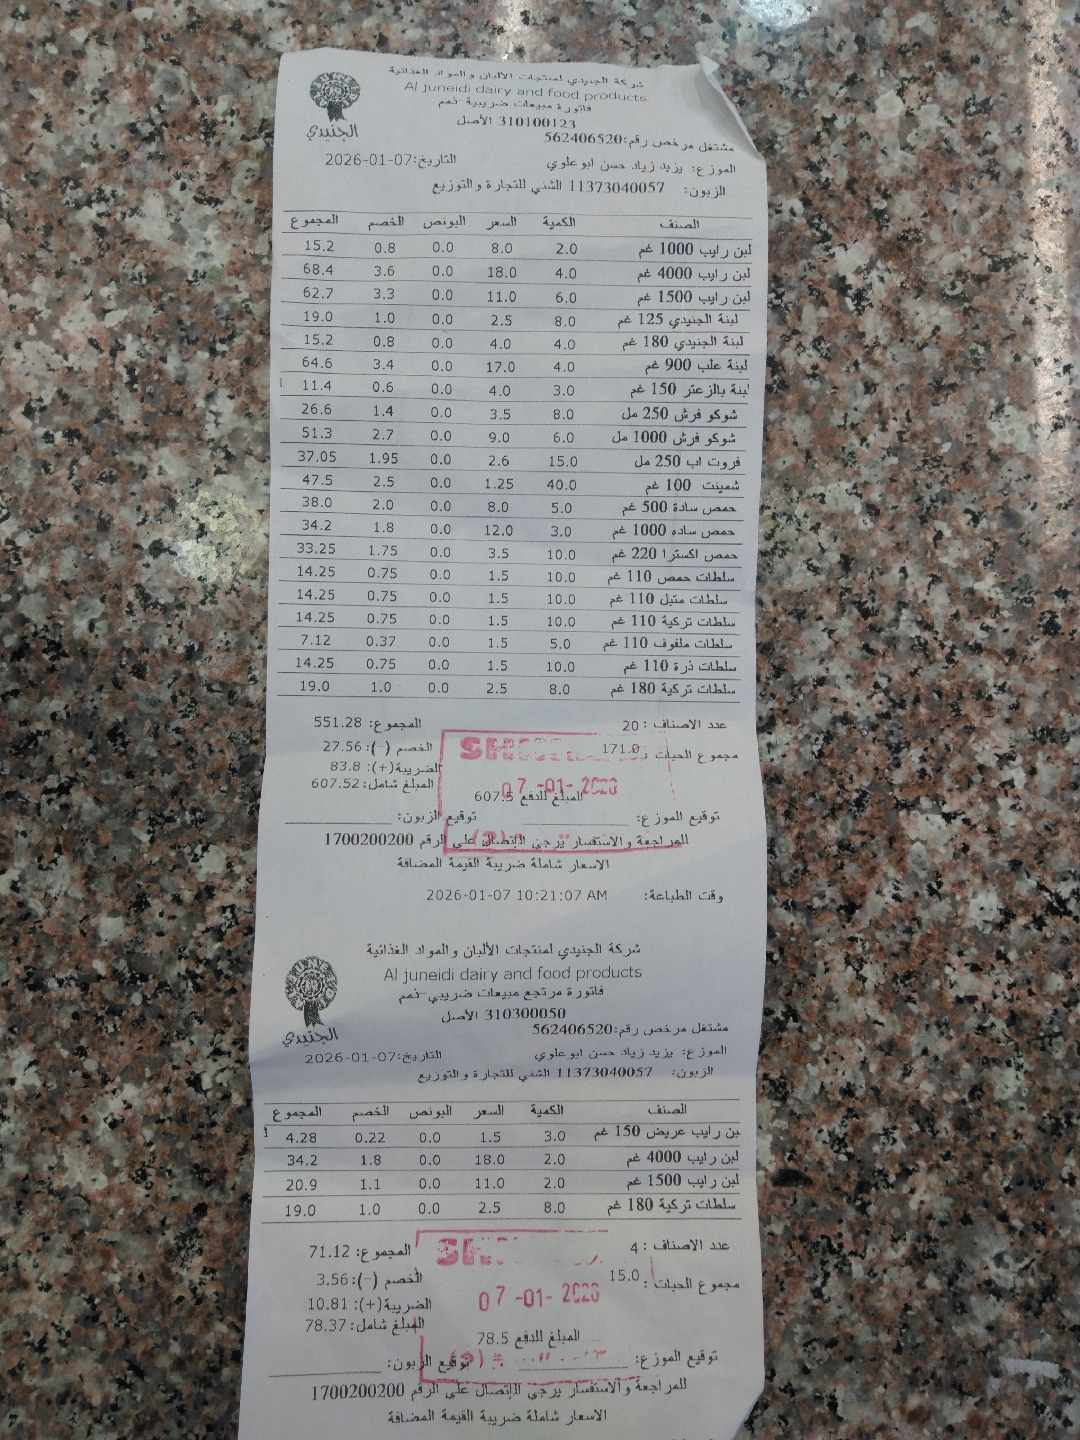 شركة الجنيدي لمنتجات الألبان والمواد الغذائية
Al juneidi dairy and food products
فاتورة مبيعات ضريبية ذمم
310100123 الأصل
الجنيدي
مشتغل مرخص رقم:562406520
الموزع: يزيد زياد حسن ابوعلوي التاريخ:2026-01-07
الزبون: 11373040057 الشني للتجارة والتوزيع
الصنف الكمية السعر البونص الخصم المجموع
لبن رايب 1000 غم 2.0 8.0 0.0 0.8 15.2
لبن رايب 4000 غم 4.0 18.0 0.0 3.6 68.4
لبن رايب 1500 غم 6.0 11.0 0.0 3.3 62.7
لبنة الجنيدي 125 غم 8.0 2.5 0.0 1.0 19.0
لبنة الجنيدي 180 غم 4.0 4.0 0.0 0.8 15.2
لبنة علب 900 غم 4.0 17.0 0.0 3.4 64.6
لبنة بالزعتر 150 غم 3.0 4.0 0.0 0.6 11.4
شوكو فرش 250 مل 8.0 3.5 0.0 1.4 26.6
شوكو فرش 1000 مل 6.0 9.0 0.0 2.7 51.3
فروت اب 250 مل 15.0 2.6 0.0 1.95 37.05
شمينت 100 غم 40.0 1.25 0.0 2.5 47.5
حمص سادة 500 غم 5.0 8.0 0.0 2.0 38.0
حمص ساده 1000 غم 3.0 12.0 0.0 1.8 34.2
حمص اكسترا 220 غم 10.0 3.5 0.0 1.75 33.25
سلطات حمص 110 غم 10.0 1.5 0.0 0.75 14.25
سلطات متبل 110 غم 10.0 1.5 0.0 0.75 14.25
سلطات تركية 110 غم 10.0 1.5 0.0 0.75 14.25
سلطات ملفوف 110 غم 5.0 1.5 0.0 0.37 7.12
سلطات ذرة 110 غم 10.0 1.5 0.0 0.75 14.25
سلطات تركية 180 غم 8.0 2.5 0.0 1.0 19.0
عدد الاصناف : 20 المجموع: 551.28
مجموع الحبات : 171.0 الخصم (-): 27.56
الضريبة(+): 83.8
المبلغ شامل: 607.52
07 -01- 2026
المبلغ للدفع 607.5
توقيع الموزع: توقيع الزبون:
للمراجعة والاستفسار يرجي الإتصال على الرقم 1700200200
الاسعار شاملة ضريبة القيمة المضافة
وقت الطباعة: 2026-01-07 10:21:07 AM
شركة الجنيدي لمنتجات الألبان والمواد الغذائية
Al juneidi dairy and food products
فاتورة مرتجع مبيعات ضريبي-ذمم
310300050 الأصل
الجنيدي
مشتغل مرخص رقم:562406520
الموزع: يزيد زياد حسن ابوعلوي التاريخ:2026-01-07
الزبون: 11373040057 الشني للتجارة والتوزيع
الصنف الكمية السعر البونص الخصم المجموع
بن رايب عريض 150 غم 3.0 1.5 0.0 0.22 4.28
لبن رايب 4000 غم 2.0 18.0 0.0 1.8 34.2
لبن رايب 1500 غم 2.0 11.0 0.0 1.1 20.9
سلطات تركية 180 غم 8.0 2.5 0.0 1.0 19.0
عدد الاصناف : 4 المجموع: 71.12
مجموع الحبات : 15.0 الخصم (-): 3.56
الضريبة(+): 10.81
المبلغ شامل: 78.37
07 -01- 2026
المبلغ للدفع 78.5
توقيع الموزع: توقيع الزبون:
للمراجعة والاستفسار يرجي الإتصال على الرقم 1700200200
الاسعار شاملة ضريبة القيمة المضافة